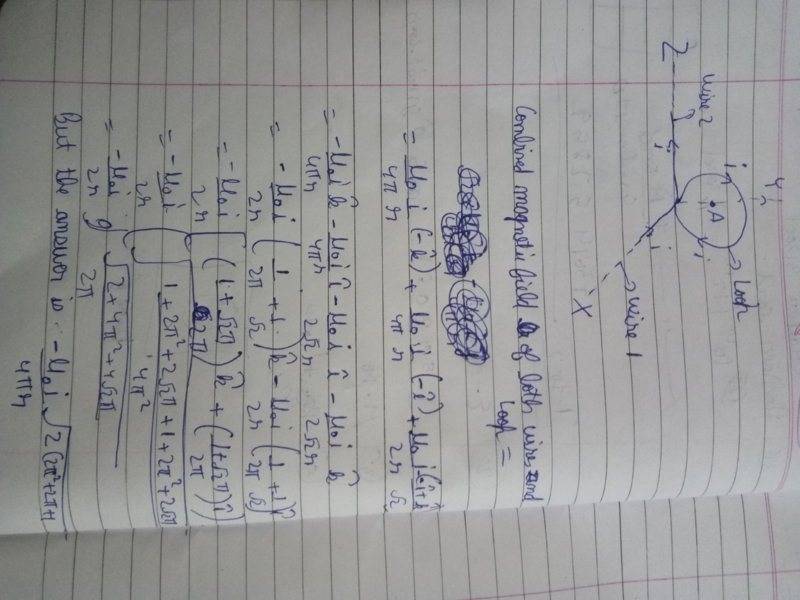 Y
Z
wire 2
i
i
A
i
i
i
Loop
wire 1
X
Combined magnetic field of both wires and
Loop =
= μ₀i/4πr (-k̂) + μ₀i/4πr (-î) + μ₀i/2r (î+k̂)/√2
= -μ₀i/4πr k̂ - μ₀i/4πr î - μ₀i/2√2r î - μ₀i/2√2r k̂
= -μ₀i/2r (1/2π + 1/√2) k̂ - μ₀i/2r (1/2π + 1/√2) î
= -μ₀i/2r [(1+√2π/2π) k̂ + (1+√2π/2π) î]
= -μ₀i/2r √(1+2π²+2√2π+1+2π²+2√2π/4π²)
= -μ₀i/2r √(2+4π²+4√2π)/2π
But the answer is : -μ₀i/4πr